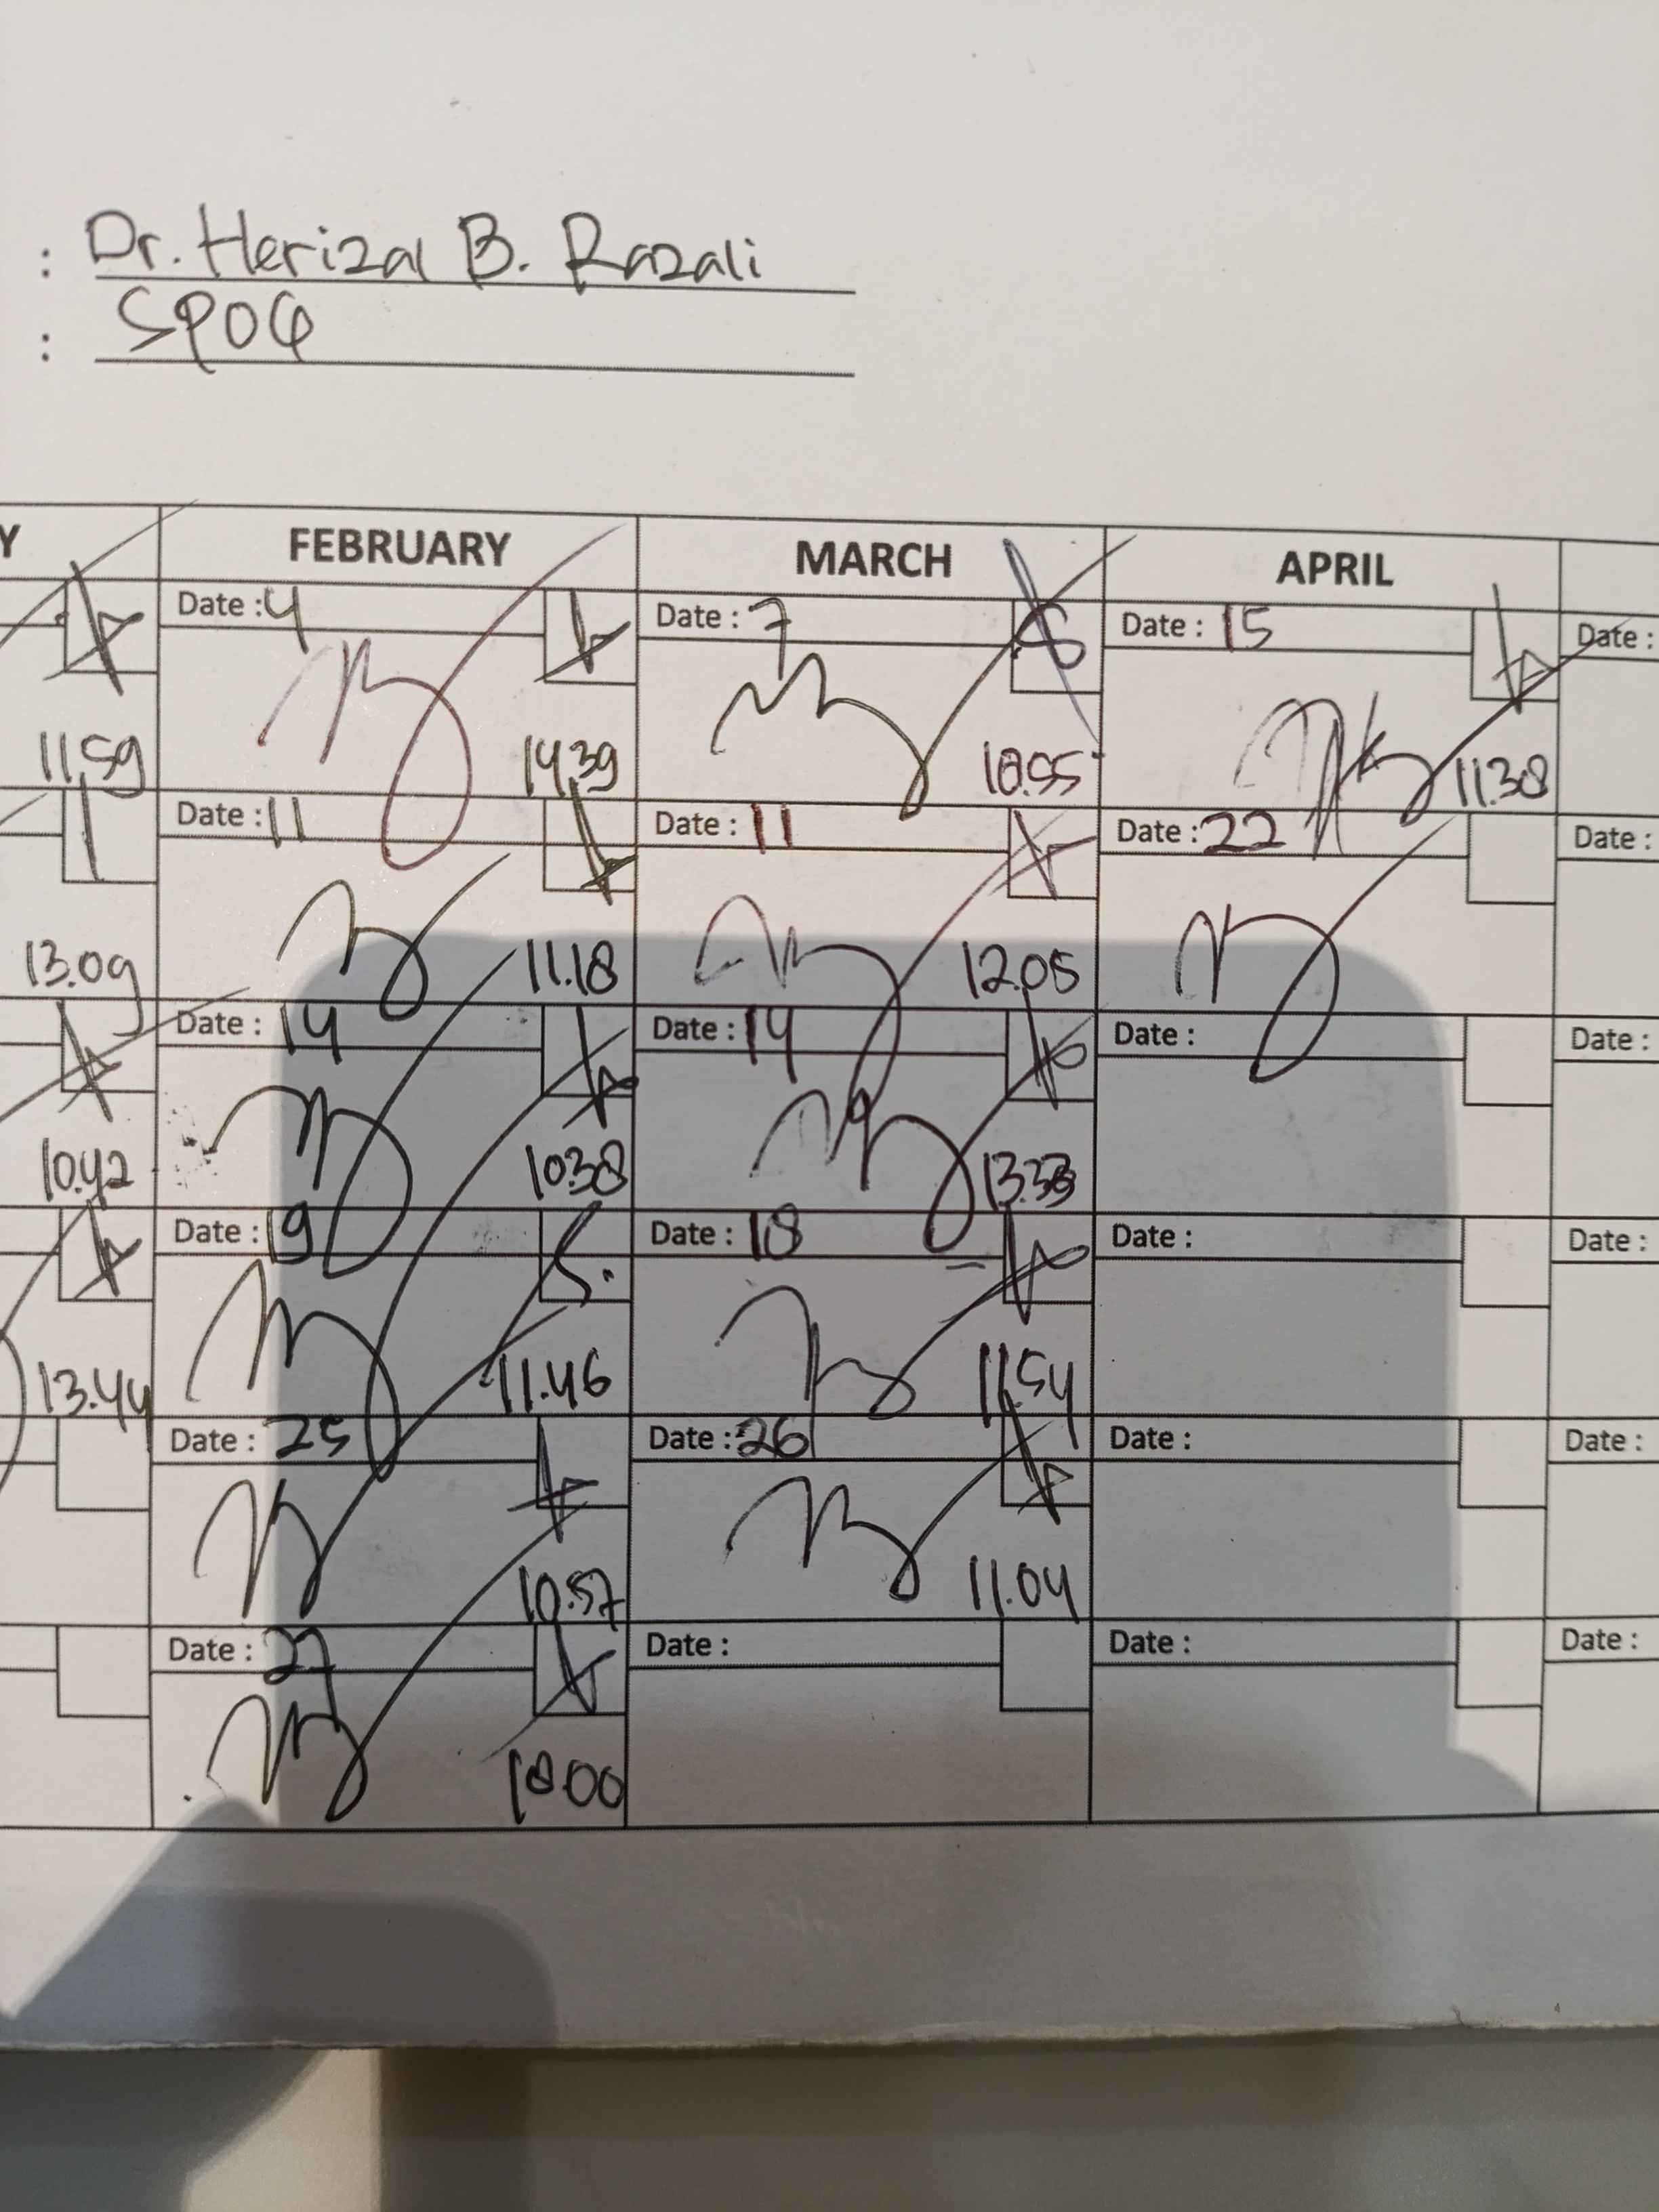 : Dr. Herizal B. Razali
: SPOG
Y FEBRUARY MARCH APRIL
Date : 4 Date : 7 Date : 15 Date :
11.59 14.39 10.55 11.38
Date : 11 Date : 11 Date : 22 Date :
13.09 11.18 12.05
Date : 14 Date : 14 Date : Date :
10.42 10.38 13.33
Date : 19 Date : 18 Date : Date :
13.44 11.46 11.54
Date : 25 Date : 26 Date : Date :
10.57 11.04
Date : 27 Date : Date : Date :
10.00